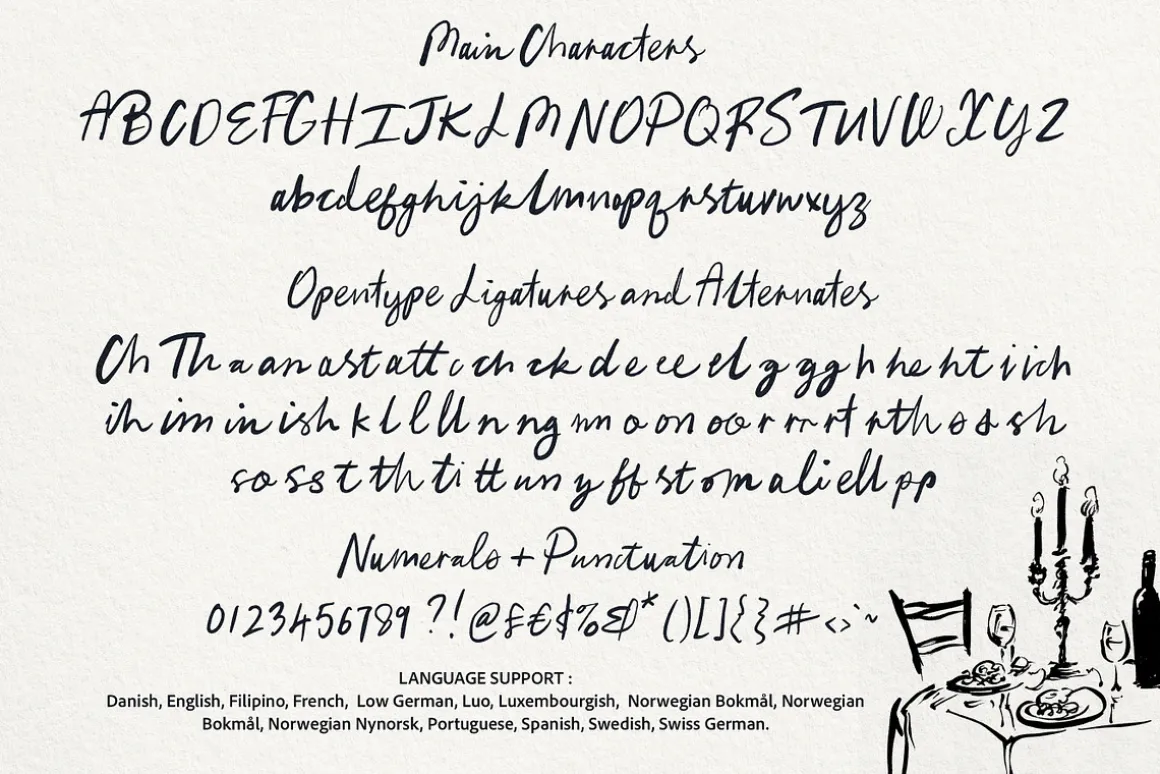 Main Characters
ABCDEFGHIJKLMNOPQRSTUVWXYZ
abcdefghijklmnopqrstuvwxyz
Opentype Ligatures and Alternates
Ch Th a an a st att c ch ck d e ee el g gg h he ht i ich
ih im in ish k l ll n ng nn o on oo r rr rt rth o s sh
so ss t th ti tt un y ff st om al i ell pp
Numerals + Punctuation
0123456789 ?! @£€$%&* ()[]{} # <> ` ~
LANGUAGE SUPPORT :
Danish, English, Filipino, French, Low German, Luo, Luxembourgish, Norwegian Bokmål, Norwegian
Bokmål, Norwegian Nynorsk, Portuguese, Spanish, Swedish, Swiss German.